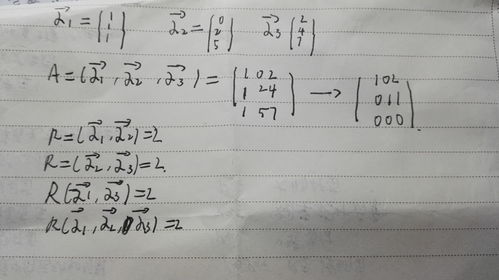 α⃗1 = (1 1 1) α⃗2 = (0 2 5) α⃗3 (2 4 7)
A = (α⃗1, α⃗2, α⃗3) = (1 0 2
1 2 4
1 5 7) → (1 0 2
0 1 1
0 0 0).
R = (α⃗1, α⃗2) = 2
R = (α⃗2, α⃗3) = 2.
R(α⃗1, α⃗3) = 2
R(α⃗1, α⃗2, α⃗3) = 2